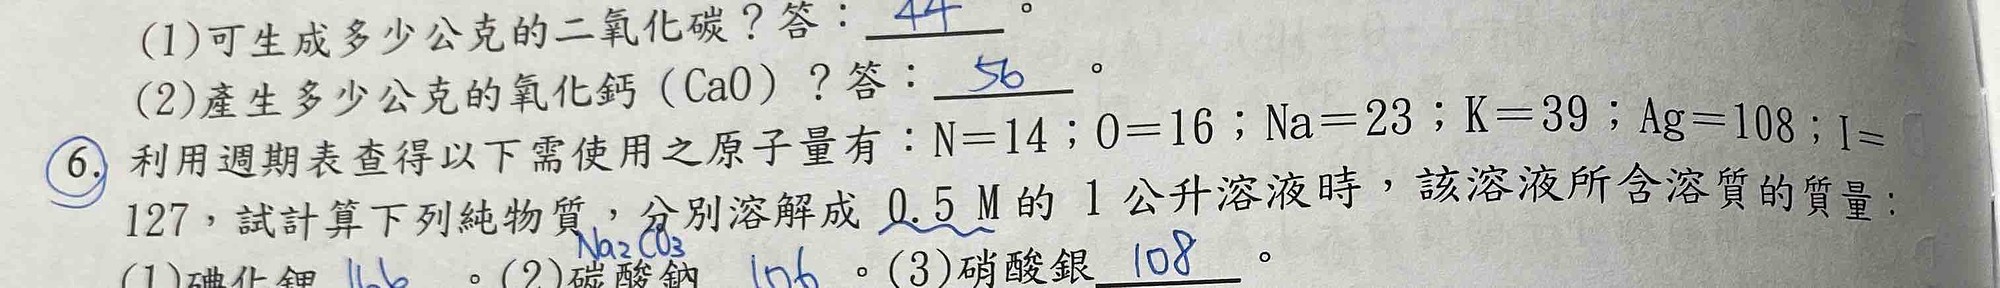 (1)可生成多少公克的二氧化碳？答：44。
(2)產生多少公克的氧化鈣（CaO）？答：56。
6. 利用週期表查得以下需使用之原子量有：N＝14；O＝16；Na＝23；K＝39；Ag＝108；I＝
127，試計算下列純物質，分別溶解成 0.5 M 的 1 公升溶液時，該溶液所含溶質的質量：
Na2CO3
(1)碘化鉀 166。(2)碳酸鈉 106。(3)硝酸銀 108。